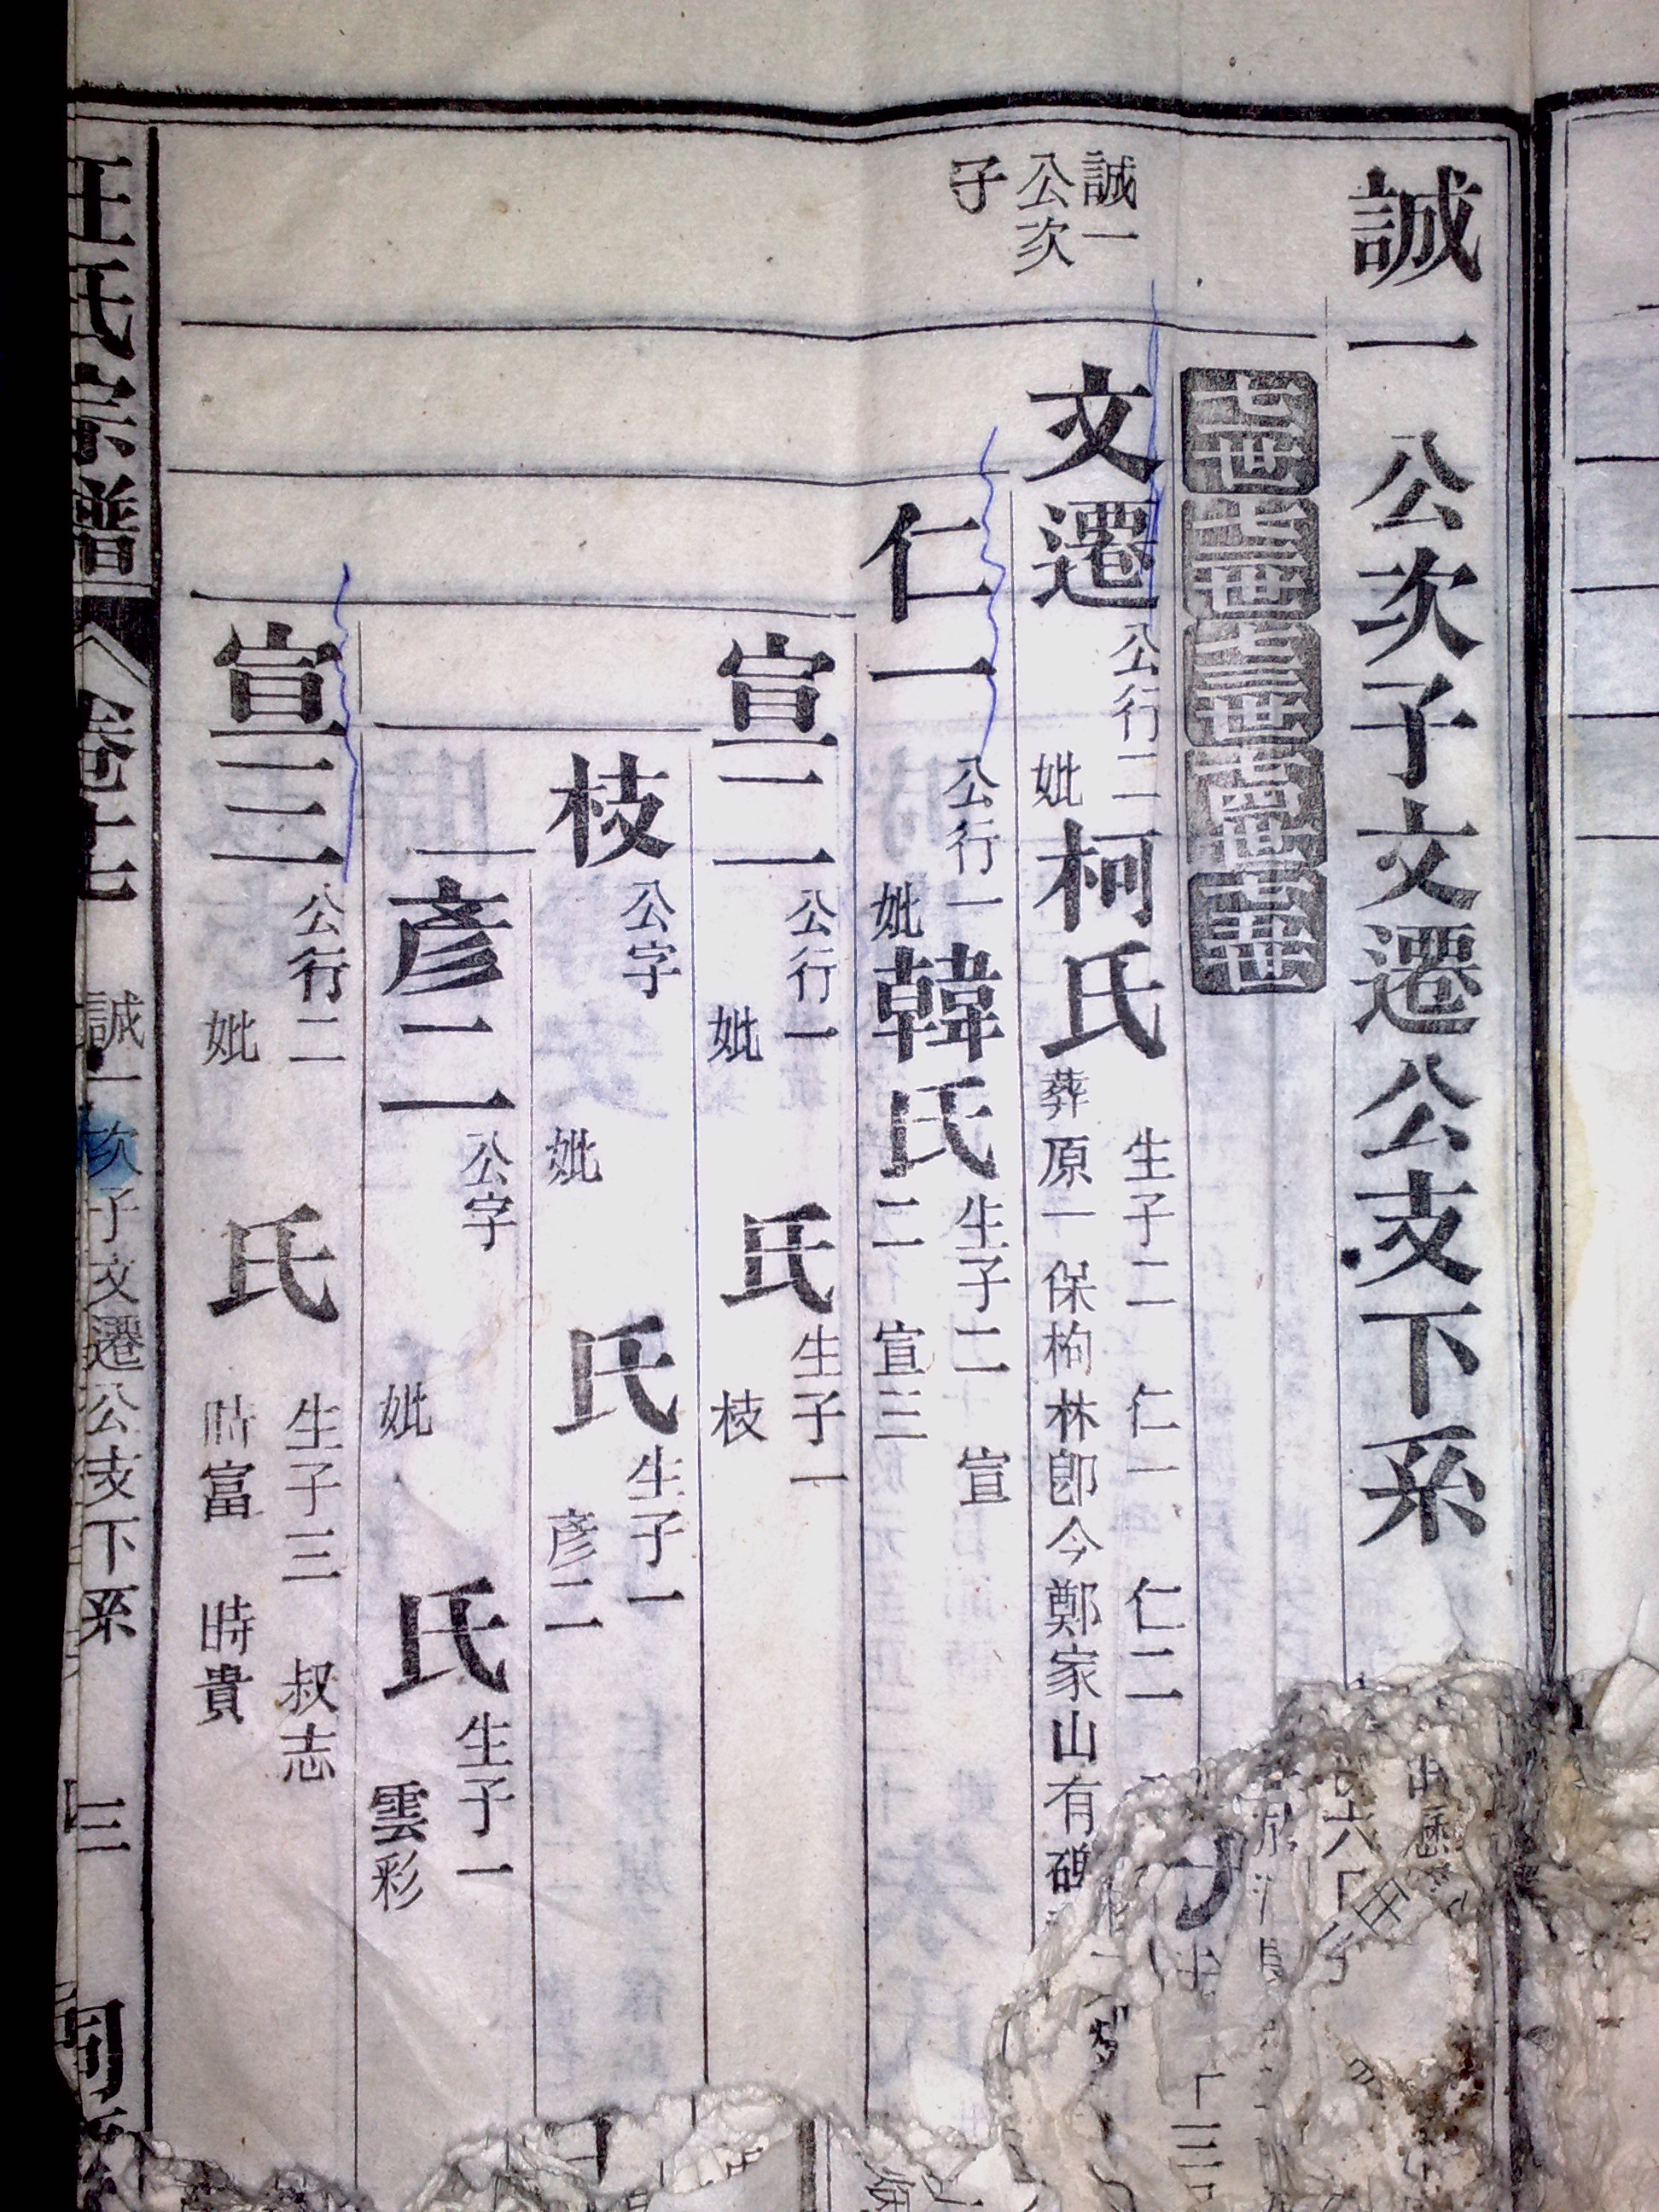 誠一公次子文遷公支下系
誠一
公次
子
文遷公行二
生子二 仁一 仁二
妣柯氏葬原一保枸林卽今鄭家山有碑
仁一公行一
生子二 宣
妣韓氏二 宣三
宣二公行一
生子一
妣 氏 枝
枝公字
生子一
妣 氏 彥二
彥二公字
生子一
妣 氏 雲彩
宣三公行二
生子三 叔志
妣 氏 時富 時貴
王氏宗譜 卷十七 誠一次子文遷公支下系 三